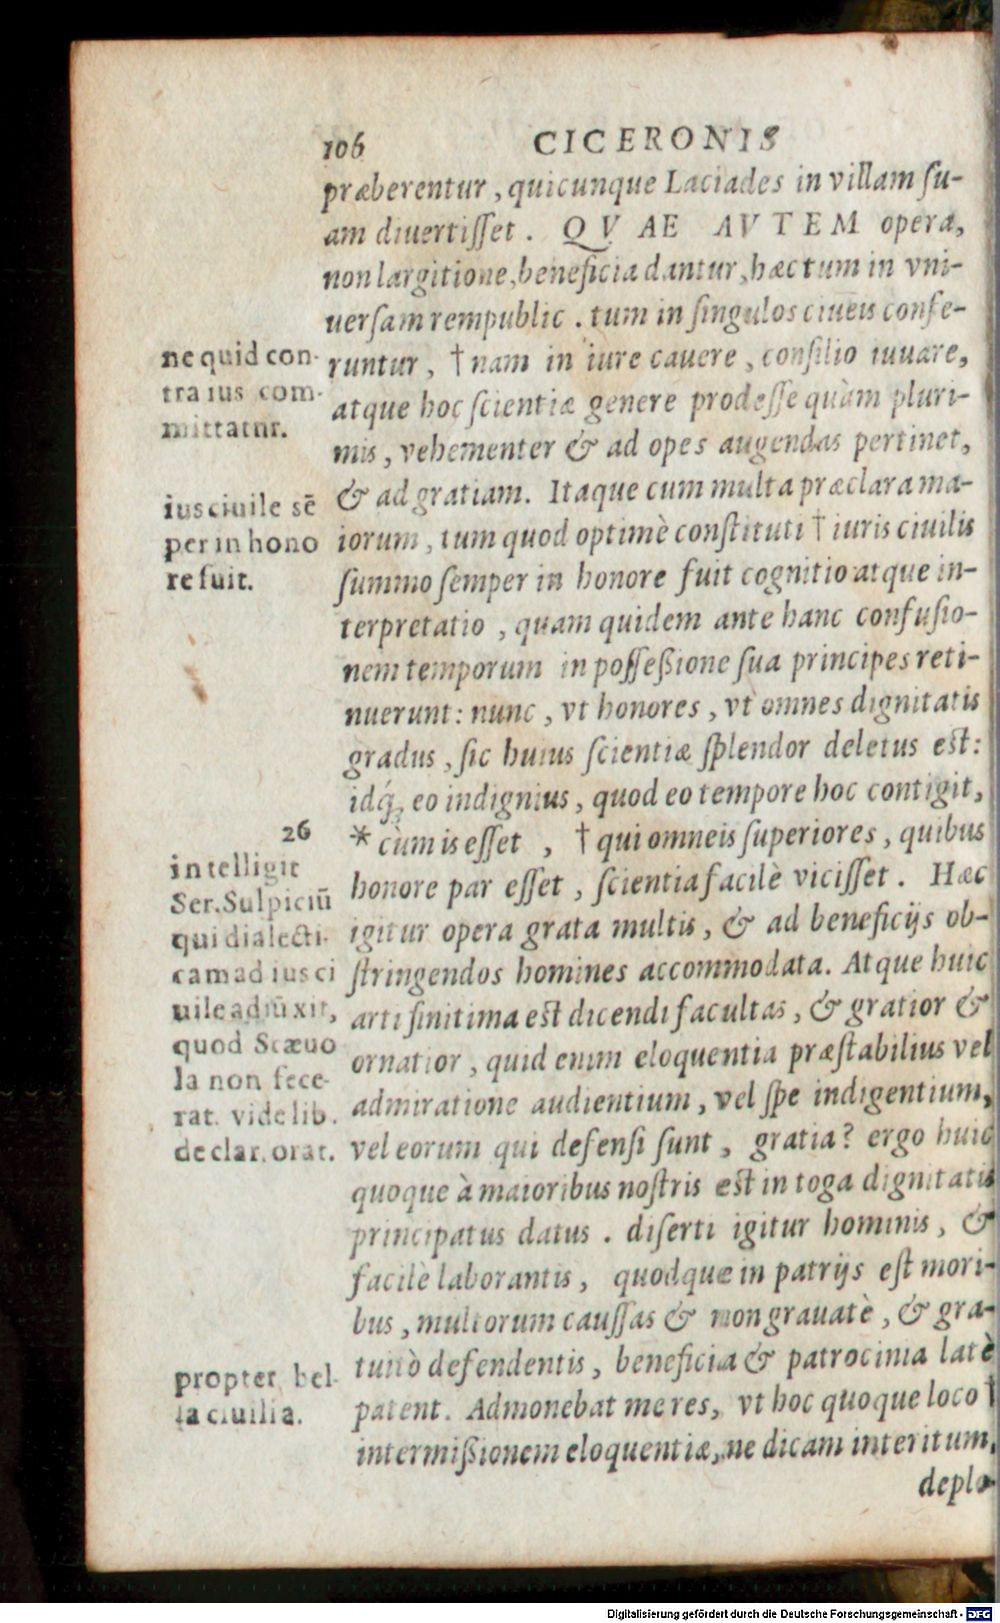 106 CICERONIS
præberentur, quicunque Laciades in villam su-
am diuertisset. QVAE AVTEM opera,
non largitione, beneficia dantur, hæc tum in vni-
uersam rempublic. tum in singulos ciueis confe-
runtur, † nam in iure cauere, consilio iuuare,
atque hoc scientiæ genere prodesse quàm pluri-
mis, vehementer & ad opes augendas pertinet,
& ad gratiam. Itaque cum multa præclara ma-
iorum, tum quod optimè constituti † iuris ciuilis
summo semper in honore fuit cognitio atque in-
terpretatio, quam quidem ante hanc confusio-
nem temporum in possessione sua principes reti-
nuerunt: nunc, vt honores, vt omnes dignitatis
gradus, sic huius scientiæ splendor deletus est:
idq́; eo indignius, quod eo tempore hoc contigit,
* cùm is esset, † qui omneis superiores, quibus
honore par esset, scientia facilè vicisset. Hæc
igitur opera grata multis, & ad beneficijs ob-
stringendos homines accommodata. Atque huic
arti finitima est dicendi facultas, & gratior &
ornatior, quid enim eloquentia præstabilius vel
admiratione audientium, vel spe indigentium,
vel eorum qui defensi sunt, gratia? ergo huic
quoque à maioribus nostris est in toga dignitatis
principatus datus. diserti igitur hominis, &
facilè laborantis, quodque in patrijs est mori-
bus, multorum caussas & non grauatè, & gra-
tuitò defendentis, beneficia & patrocinia latè
patent. Admonebat me res, vt hoc quoque loco †
intermissionem eloquentiæ, ne dicam interitum,
deplo-
ne quid con-
tra ius com-
mittatur.
ius ciuile sē
per in hono
re fuit.
26
intelligit
Ser. Sulpiciū
qui dialecti-
cam ad ius ci
uile adiūxit,
quod Scæuo
la non fece-
rat. vide lib.
de clar. orat.
propter bel-
la ciuilia.
Digitalisierung gefördert durch die Deutsche Forschungsgemeinschaft - DFG